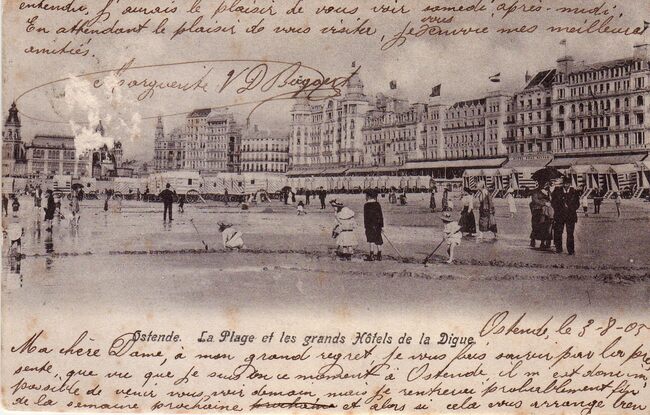 entendu, j'aurais le plaisir de vous voir samedi après-midi,
vous
En attendant le plaisir de vous visiter, j'envoie mes meilleures
amitiés.
Marguerite V D Bogaert
Ostende. La Plage et les grands Hôtels de la Digue.
Ostende, le 3-8-05
Ma chère Dame, à mon grand regret, je vous fais savoir par la pré
sente, que vu que je suis en ce moment à Ostende il m'est donc im
possible de venir vous voir demain mais je rentrerai probablement fin
de la semaine prochaine et alors si cela vous arrange bien